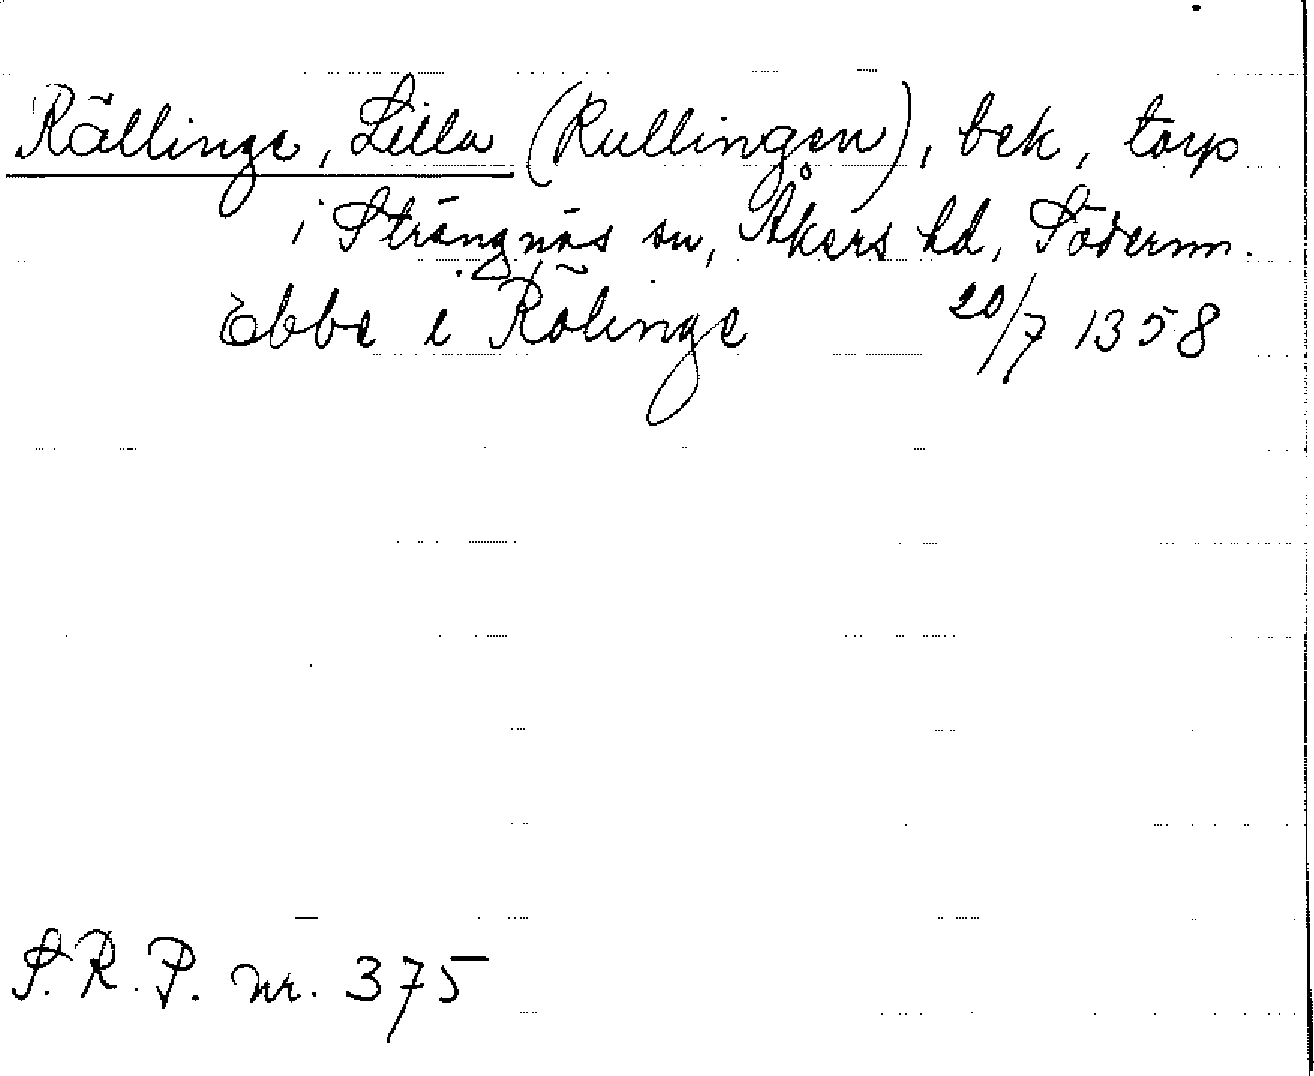 Rällinge, Lilla (Rullingen), bek, torp
i Strängnäs sn, Åkers hd, Söderm.
Ebbe i Rölinge 20/7 1358
S.R.P. nr. 375